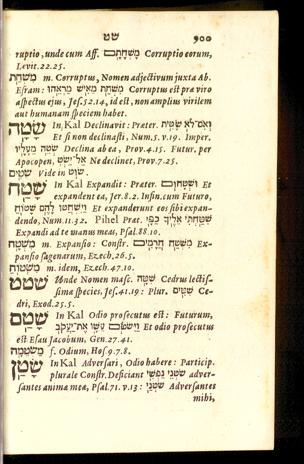 שט 900
ruptio, unde cum Aff. מָשְׁחָתָם Corruptio eorum,
Levit. 22. 25.
מִשְׁחַת m. Corruptus, Nomen adjectivum juxta Ab.
Esram: מִשְׁחַת מֵאִישׁ מַרְאֵהוּ Corruptus est præ viro
aspectus ejus, Jes. 52. 14, id est, non amplius virilem
aut humanam speciem habet.
שָׂטָה In Kal Declinavit: Præter. וְאִם־לֹא שָׂטִית
Et si non declinasti, Num. 5. v. 19. Imper.
שְׂטֵה מֵעָלָיו Declina ab ea, Prov. 4. 15. Futur. per
Apocopen, אַל־יֵשְׂט Ne declinet, Prov. 7. 25.
שֵׂטִים Vide in שׂוּט
שָׁטַח In Kal Expandit: Præter. וּשְׁטָחוּם Et
expandent ea, Jer. 8. 2. Infin. cum Futuro,
וַיִּשְׁטְחוּ לָהֶם שָׁטוֹחַ Et expanderunt eos sibi expan-
dendo, Num. 11. 32. Pihel Præt. שִׁטַּחְתִּי אֵלֶיךָ כַפָּי
Expandi ad te manus meas, Psal. 88. 10.
מִשְׁטַח m. Expansio: Constr. מִשְׁטַח חֲרָמִים Ex-
pansio sagenarum, Ezech. 26. 5.
מִשְׁטוֹחַ m. idem, Ezech. 47. 10.
שטט Unde Nomen masc. שִׁטָּה Cedrus lectis-
simæ species, Jes. 41. 19: Plur. שִׁטִּים Ce-
dri, Exod. 25. 5.
שָׂטַם In Kal Odio prosecutus est: Futurum,
וַיִּשְׂטֹם עֵשָׂו אֶת־יַעֲקֹב Et odio prosecutus
est Esau Jacobum, Gen. 27. 41.
מַשְׂטֵמָה f. Odium, Hos. 9. 7. 8.
שָׂטַן In Kal Adversari, Odio habere: Particip.
plurale Constr. Deficiant שֹׂטְנֵי נַפְשִׁי adver-
santes animæ meæ, Psal. 71. v. 13: שֹׂטְנַי Adversantes
mihi,